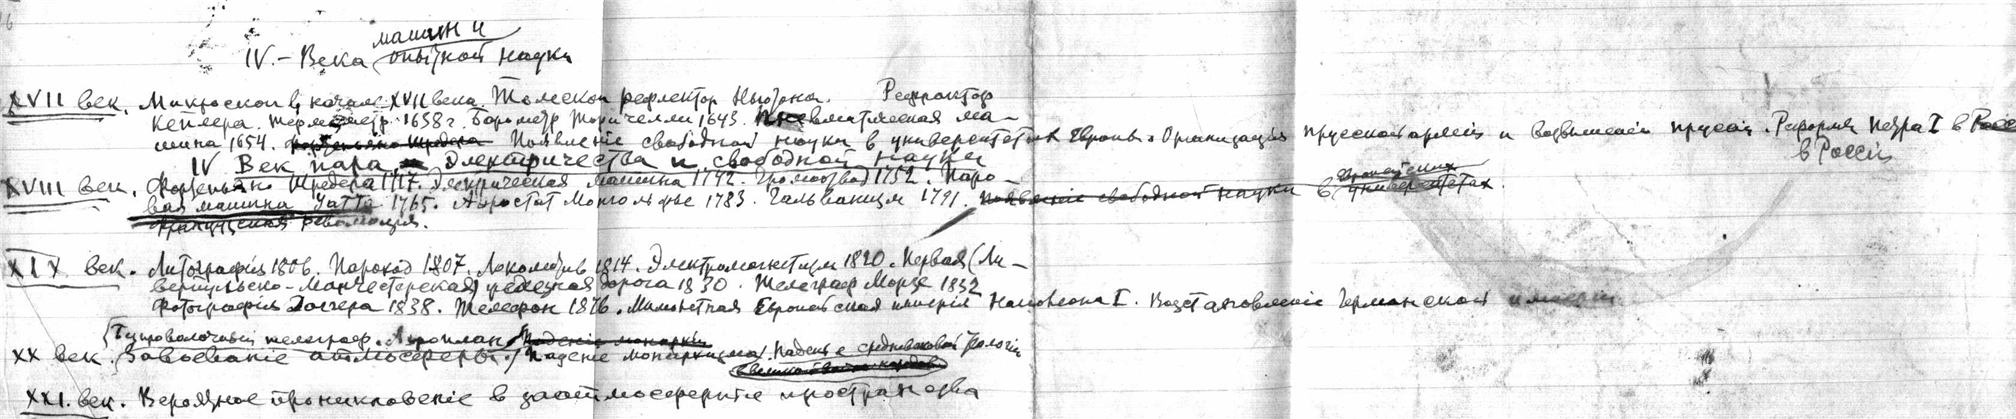 машин и
IV. – Века опытной науки
XVII век. Микроскоп в начале XVII века. Телескоп рефлектор Ньютона. Рефрактор
Кеплера. Термометр 1658 г. Барометр Торичелли 1643. Пневматическая ма-
шина 1654. Фортепьяно Шредера Появленіе свободной науки в университетах Европы. Организація прусской арміи и возвышеніи Прусіи. Реформы Петра I в Росс
в Россіи
IV Век пара и электричества и свободной науки
XVIII век. Фортепьяно Шредера 1717. Электрическая машина 1742. Громоотвод 1752. Паро-
вая машина Уатта 1765. Аэростат Монгольфье 1783. Гальванизм 1791. Появленіе свободной науки в Европейских университетах.
Французская революція.
XIX век. Литографія 1806. Пароход 1807. Локомотив 1814. Электромагнетизм 1820. Первая (Ли-
верпульско-Манчестерская) железная дорога 1830. Телеграф Морзе 1832
Фотографія Даггера 1838. Телефон 1876. Мимолетная Европейская имперія Наполеона I. Возстановленіе Германской имперіи
Безпроволочный телеграф. Аэроплан. Паденіе монархіи
XX век. Завоеваніе атмосферы. Паденіе монархизма. Паденіе средневековой теологіи
XXI. век. Вероятное проникновеніе в заатмосферные пространства